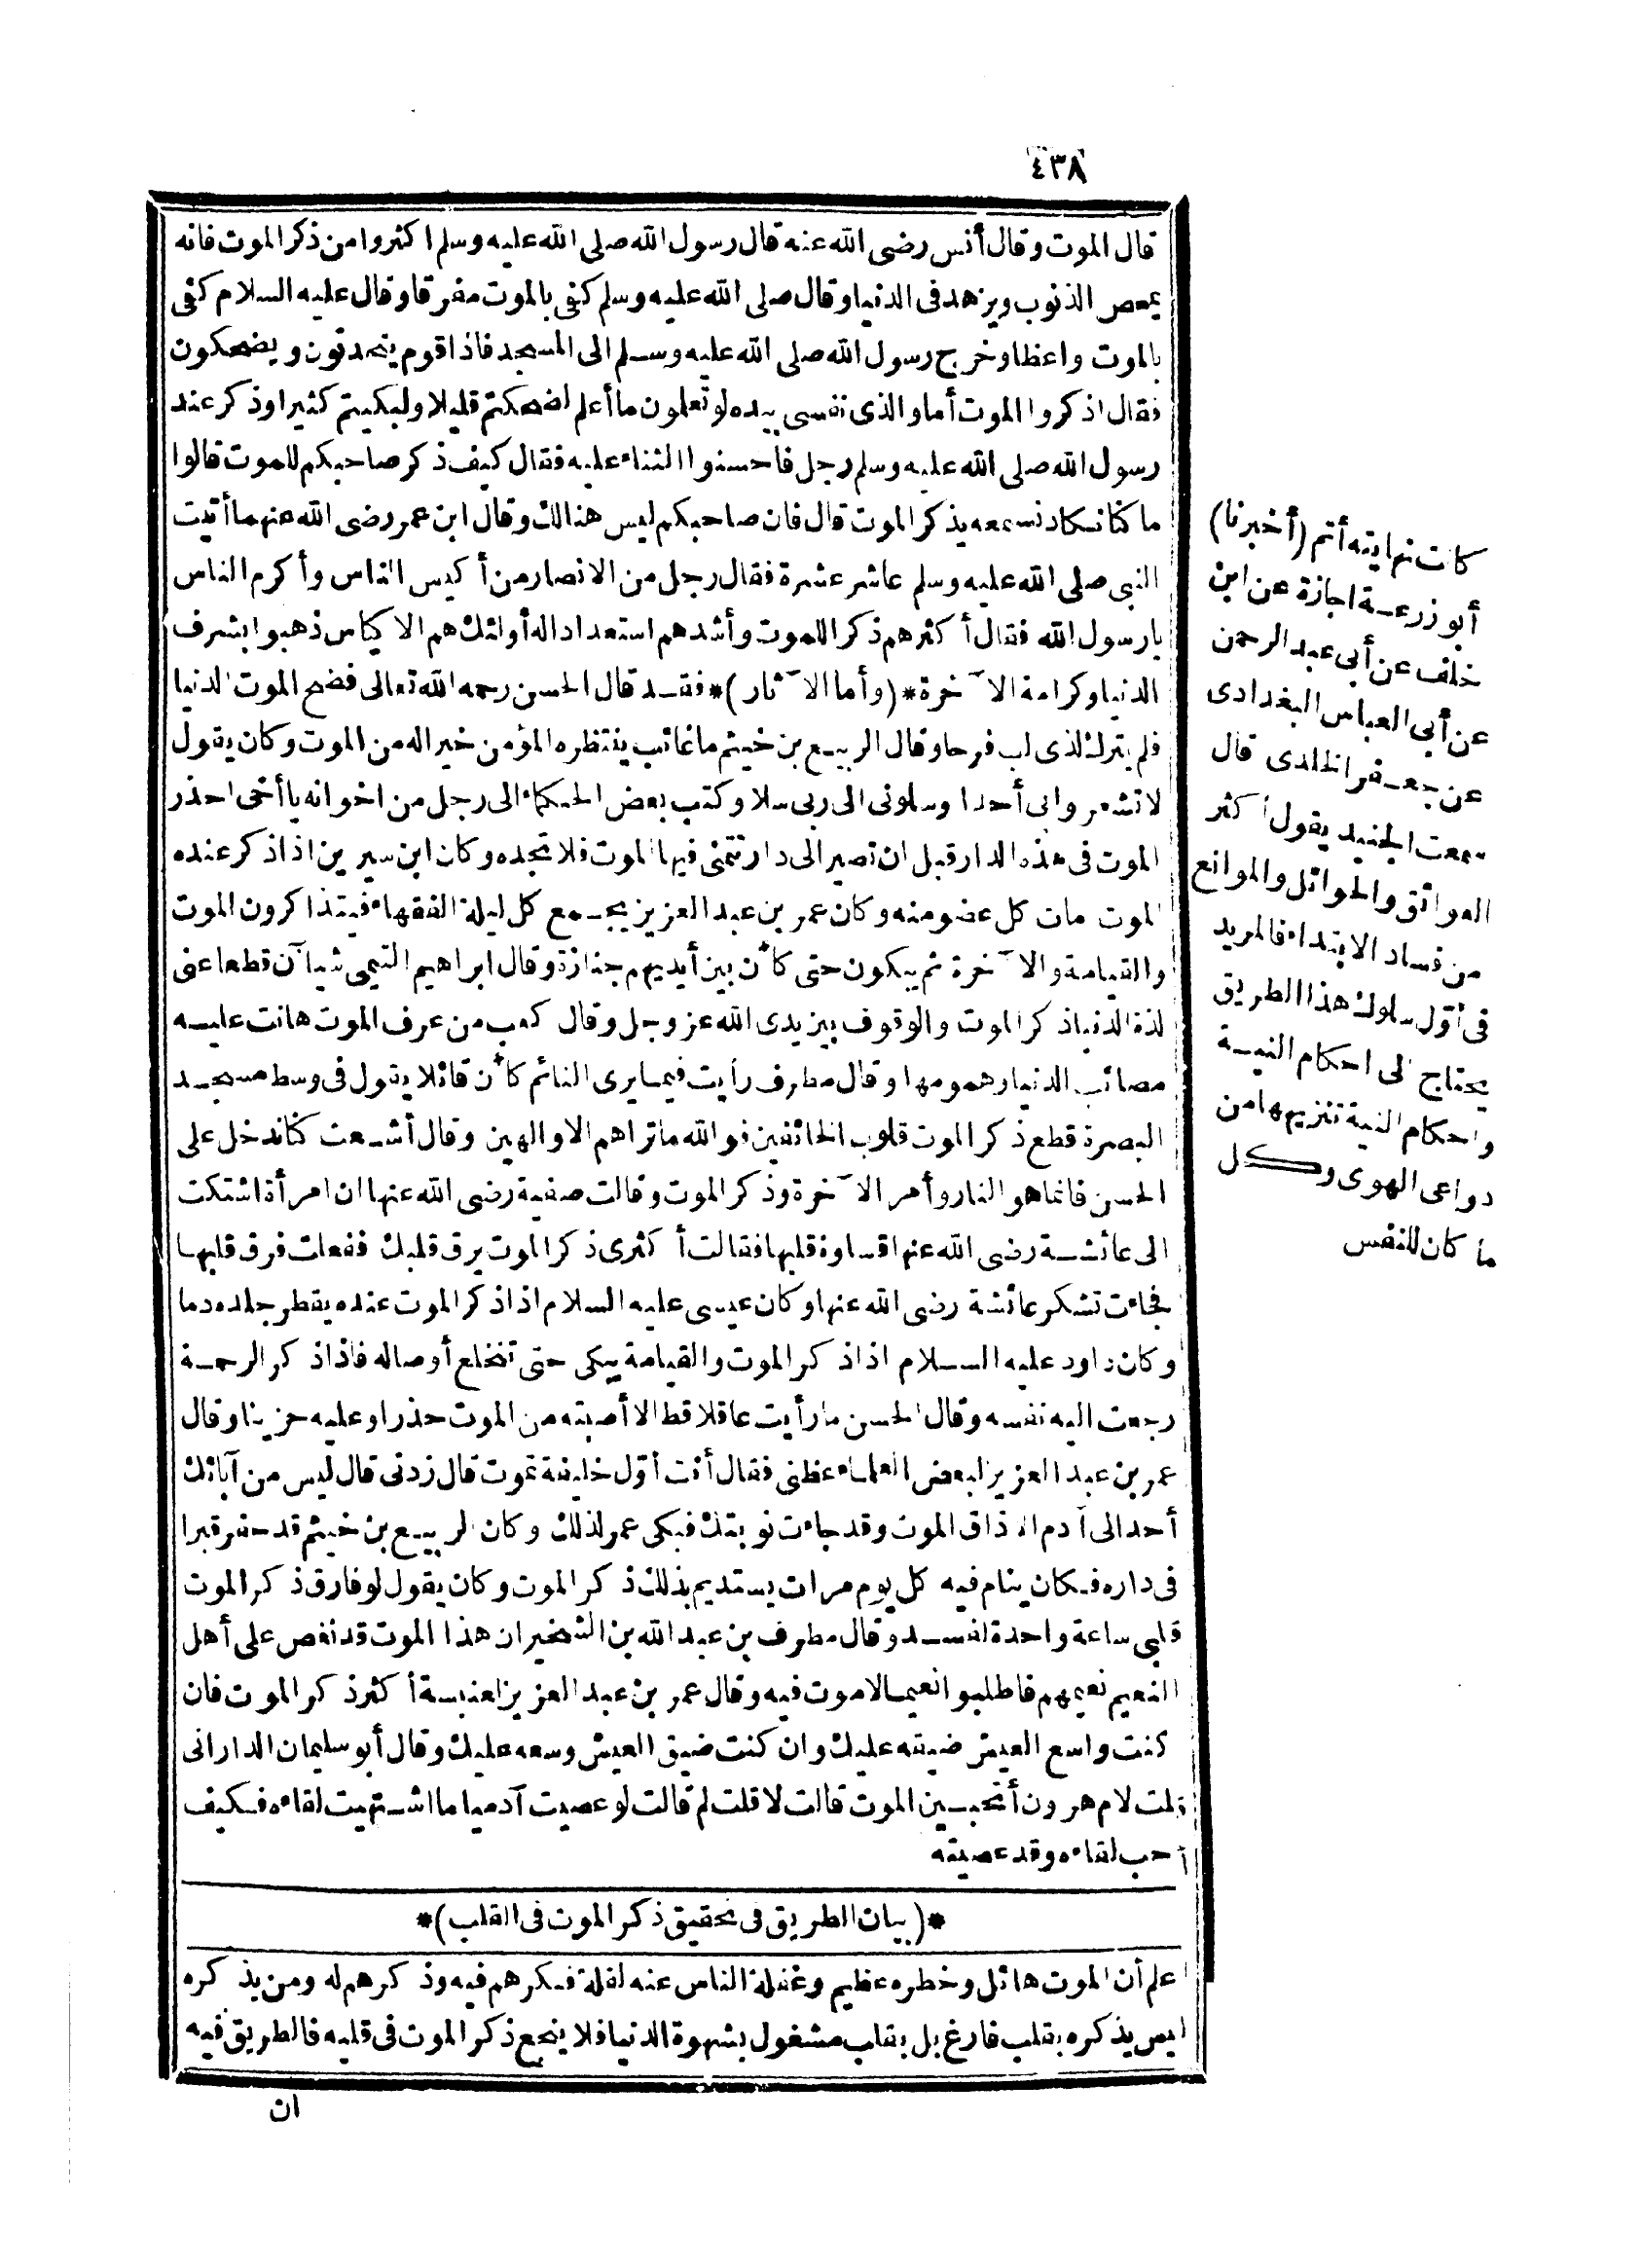 ٤٣٨
قال الموت وقال أنس رضى الله عنه قال رسول الله صلى الله عليه وسلم اكثروا من ذكر الموت فانه
يمحص الذنوب ويزهد فى الدنيا وقال صلى الله عليه وسلم كفى بالموت مفرقا وقال عليه السلام كفى
بالموت واعظا وخرج رسول الله صلى الله عليه وسلم الى المسجد فاذا قوم يتحدثون ويضحكون
فقال اذكروا الموت أما والذى نفسى بيده لو تعلمون ما أعلم لضحكتم قليلا ولبكيتم كثيرا وذكر عند
رسول الله صلى الله عليه وسلم رجل فأحسنوا الثناء عليه فقال كيف ذكر صاحبكم للموت قالوا
ما كنا نكاد نسمعه يذكر الموت قال فان صاحبكم ليس هنالك وقال ابن عمر رضى الله عنهما أتيت
النبى صلى الله عليه وسلم عاشر عشرة فقال رجل من الانصار من أكيس الناس وأكرم الناس
يا رسول الله فقال أكثرهم ذكرا للموت وأشدهم استعدادا له أولئك هم الاكياس ذهبوا بشرف
الدنيا وكرامة الآخرة *(وأما الآثار)* فقد قال الحسن رحمه الله تعالى فضح الموت الدنيا
فلم يترك لذى لب فرحا وقال الربيع بن خيثم ما غائب ينتظره المؤمن خير اله من الموت وكان يقول
لا تشعروا بى أحدا وسلونى الى ربى سلا وكتب بعض الحكماء الى رجل من اخوانه يا أخى احذر
الموت فى هذه الدار قبل ان تصير الى دار تتمنى فيها الموت فلا تجده وكان ابن سيرين اذا ذكر عنده
الموت مات كل عضو منه وكان عمر بن عبد العزيز يجمع كل ليلة الفقهاء فيتذاكرون الموت
والقيامة والآخرة ثم يبكون حتى كأن بين أيديهم جنازة وقال ابراهيم التيمى شيآن قطعا عنى
لذة الدنيا ذكر الموت والوقوف بين يدى الله عز وجل وقال كعب من عرف الموت هانت عليه
مصائب الدنيا وهمومها وقال مطرف رأيت فيما يرى النائم كأن قائلا يقول فى وسط مسجد
البصرة قطع ذكر الموت قلوب الخائفين فو الله ما تراهم الا والهين وقال أشعت كنا ندخل على
الحسن فانما هو النار وأمر الآخرة وذكر الموت وقالت صفية رضى الله عنها ان امرأة اشتكت
الى عائشة رضى الله عنها قساوة قلبها فقالت أكثرى ذكر الموت يرق قلبك ففعلت فرق قلبها
فجاءت تشكر عائشة رضى الله عنها وكان عيسى عليه السلام اذا ذكر الموت عنده يقطر جلده دما
وكان داود عليه السلام اذا ذكر الموت والقيامة يبكى حتى تنخلع أوصاله فاذا ذكر الرحمة
رجعت اليه نفسه وقال الحسن ما رأيت عاقلا قط الا أصبته من الموت حذرا وعليه حزينا وقال
عمر بن عبد العزيز لبعض العلماء عظنى فقال أنت أول خليفة تموت قال زدنى قال ليس من آبائك
أحد الى آدم الا ذاق الموت وقد جاءت نوبتك فبكى عمر لذلك وكان الربيع بن خيثم قد حفر قبرا
فى داره فكان ينام فيه كل يوم مرات يستديم بذلك ذكر الموت وكان يقول لو فارق ذكر الموت
قلبى ساعة واحدة لفسد وقال مطرف بن عبد الله بن الشخير ان هذا الموت قد نغص على أهل
النعيم نعيمهم فاطلبوا نعيما لا موت فيه وقال عمر بن عبد العزيز لعنبسة أكثر ذكر الموت فان
كنت واسع العيش ضيقه عليك وان كنت ضيق العيش وسعه عليك وقال أبو سليمان الدارانى
قلت لام هرون أتحبين الموت قالت لا قلت لم قالت لو عصيت آدميا ما اشتهيت لقاءه فكيف
أحب لقاءه وقد عصيته
*(بيان الطريق فى تحقيق ذكر الموت فى القلب)*
اعلم أن الموت هائل وخطره عظيم وغفلة الناس عنه لقلة فكرهم فيه وذكرهم له ومن يذكره
ليس يذكره بقلب فارغ بل بقلب مشغول بشهوة الدنيا فلا ينجع ذكر الموت فى قلبه فالطريق فيه
ان
كانت نهايته أتم (أخبرنا)
أبو زرعة اجازة عن ابن
خلف عن أبى عبد الرحمن
عن أبى العباس البغدادى
عن جعفر الخلدى قال
سمعت الجنيد يقول أكثر
العوائق والحوائل والموانع
من فساد الابتداء فالمريد
فى أول سلوك هذا الطريق
يحتاج الى احكام النية
واحكام النية تنزيهها من
دواعى الهوى وكل
ما كان للنفس